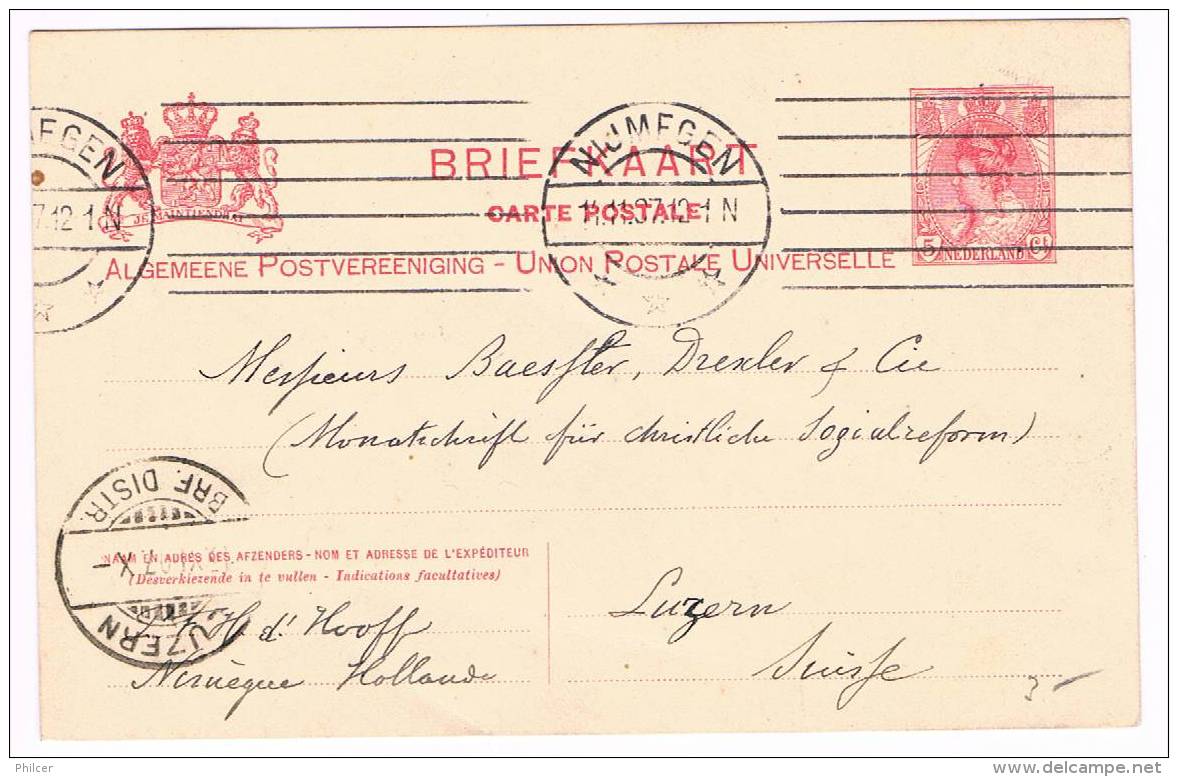 NIJMEGEN
7.12 1 N
NIJMEGEN
11.07.12 1 N
JE MAINTIENDRAI
BRIEFKAART
CARTE POSTALE
ALGEMEENE POSTVEREENIGING - UNION POSTALE UNIVERSELLE
5 NEDERLAND Ct
Messieurs Baessler, Drexler & Cie
(Monatschrift für christliche Sozialreform)
BRF. DISTR.
LUZERN
NAAM EN ADRES DES AFZENDERS - NOM ET ADRESSE DE L'EXPÉDITEUR
(Desverkiezende in te vullen - Indications facultatives)
H d' Hooff
Nimègue Hollande
Luzern
Suisse
Philcer
delcampe.net